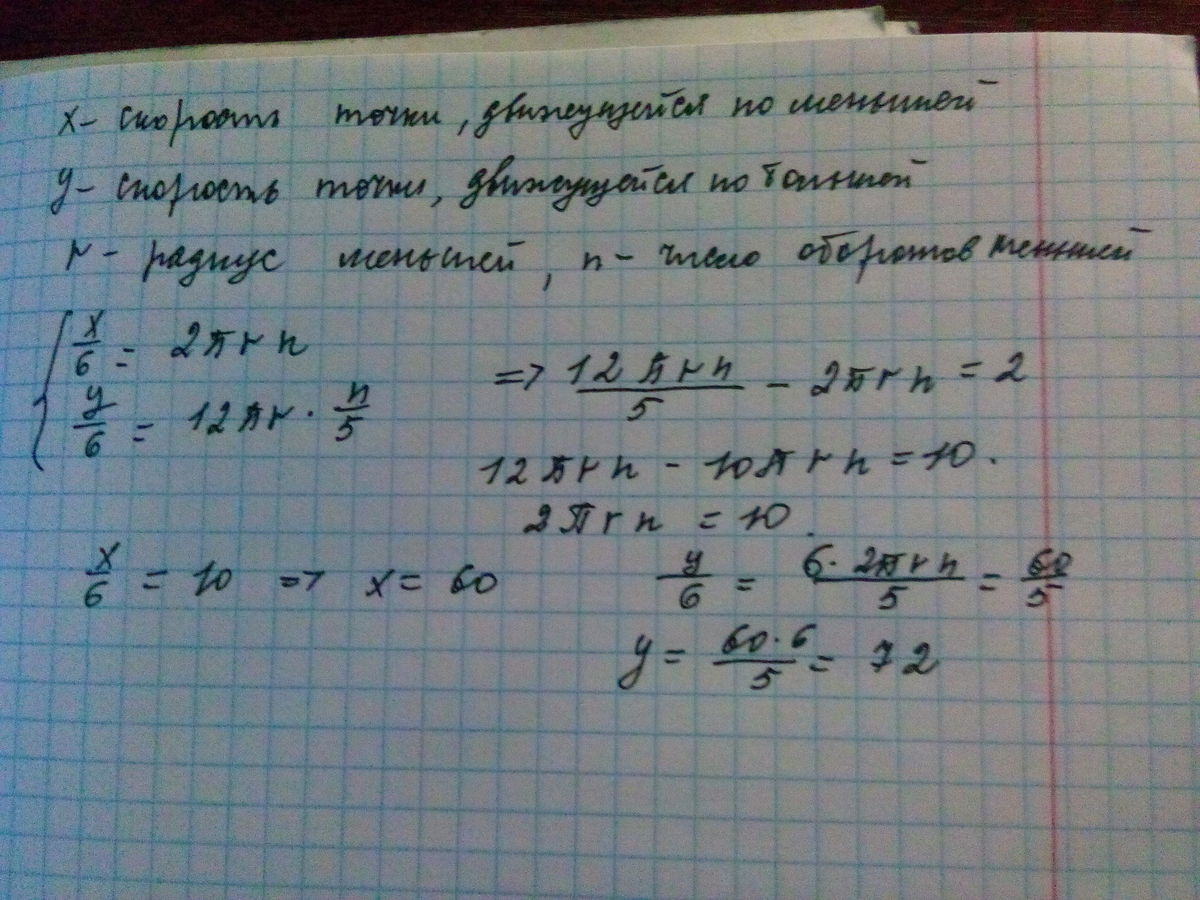 x – скорость точки, движущейся по меньшей
y – скорость точки, движущейся по большей
r – радиус меньшей, n – число оборотов меньшей
x/6 = 2πrn
y/6 = 12πr · n/5
=> 12πrn/5 – 2πrn = 2
12πrn – 10πrn = 10.
2πrn = 10.
x/6 = 10 => x = 60
y/6 = 6·2πrn/5 = 60/5
y = 60·6/5 = 72